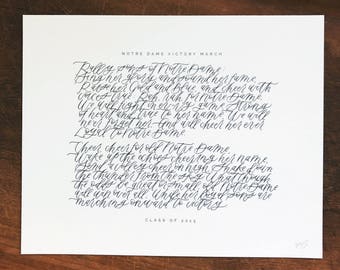 NOTRE DAME VICTORY MARCH
Rally sons of Notre Dame.
Sing her glory and sound her fame.
Raise her Gold and Blue. and cheer with
voices true Rah, rah, for Notre Dame.
We will fight in every game. Strong
of heart and true to her name. We will
ne'er forget her. And will cheer her ever
Loyal to Notre Dame.
Cheer, cheer for old Notre Dame.
Wake up the echoes cheering her name,
Send a volley cheer on high. Shake down
the thunder from the sky. What though
the odds be great or small, old Notre Dame
will win over all. While her loyal sons are
marching onward to victory.
CLASS OF